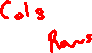 Cols
Rows